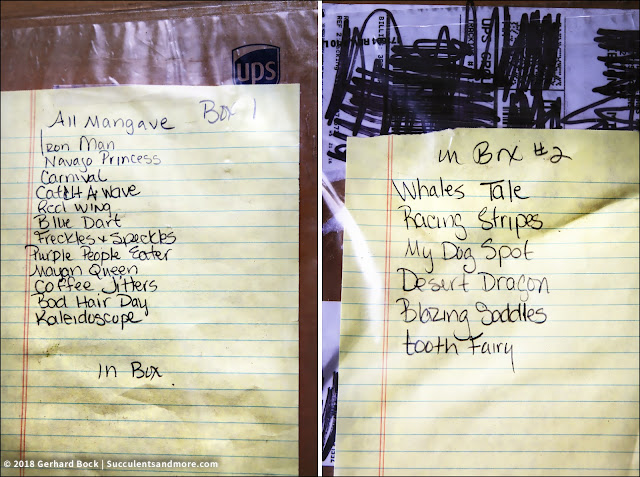 ups
All Mangave Box 1
Iron Man
Navajo Princess
Carnival
Catch A Wave
Red Wing
Blue Dart
Freckles & Speckles
Purple People Eater
Mayan Queen
Coffee Jitters
Bad Hair Day
Kaleidoscope
in Box
© 2018 Gerhard Bock | Succulentsandmore.com
in Box #2
Whales Tale
Racing Stripes
My Dog Spot
Desert Dragon
Blazing Saddles
tooth Fairy